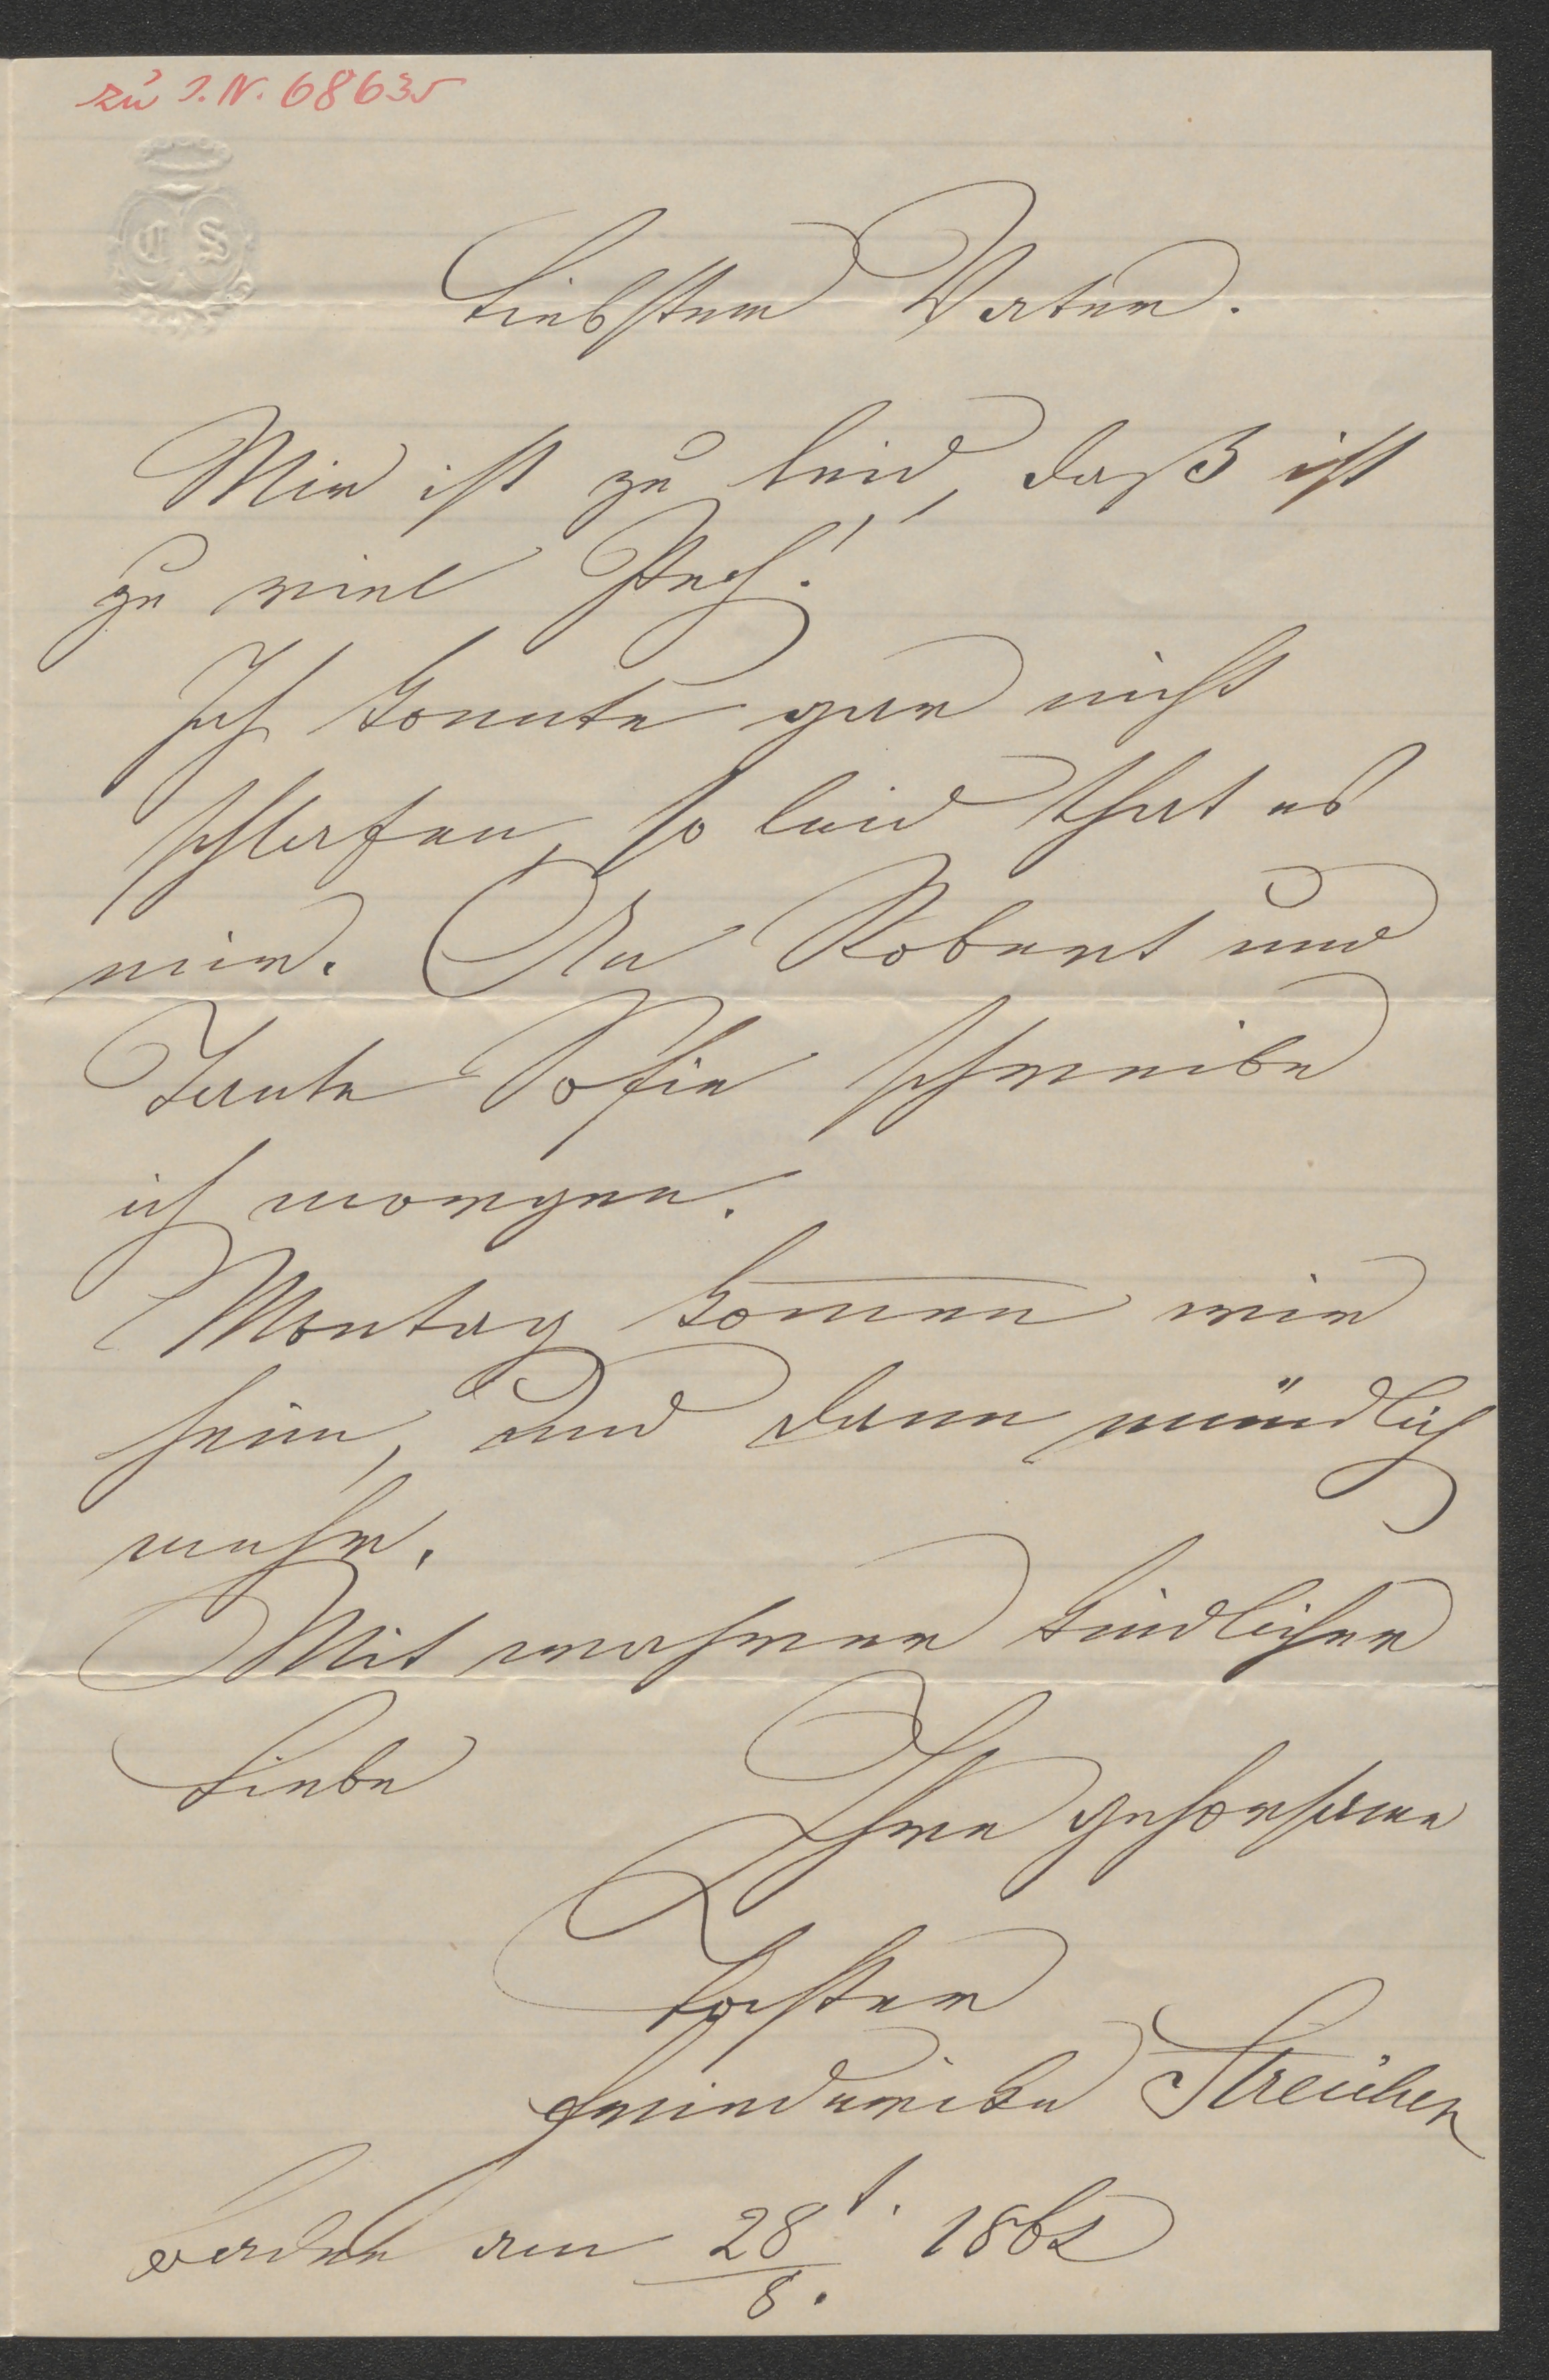 zu I.N. 68635
C S
Liebster Vater.
Mir ist zu leid, daß ist
zu viel Pech!
Ich konnte gar nicht
schlafen, so leid that es
mir. An Robert und
Tante Sofie schreibe
ich morgen.
Montag kom̅en wir
heim, und dann mündlich
mehr.
Mit wahrer kindlicher
Liebe
Ihre gehorsame
Tochter
Friederike Streicher
Baden am 28t. 1862
8.